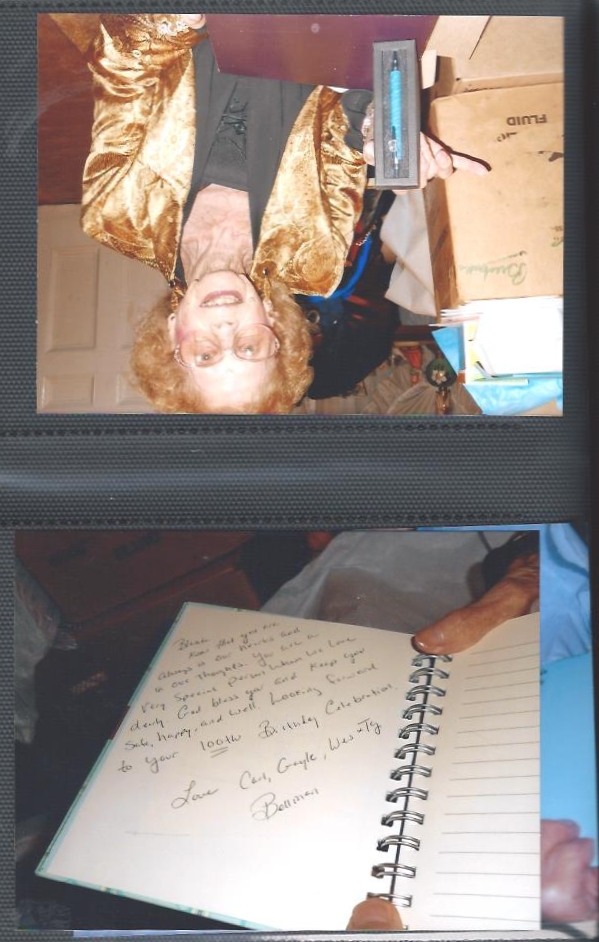 FLUID
know that you are
always in our hearts and
in our thoughts. You are a
very special person whom we love
dearly. God bless you and keep you
safe, happy, and well. Looking forward
to your 100th Birthday Celebration.
Love Carl, Gayle, Wes & Ty
Bellman